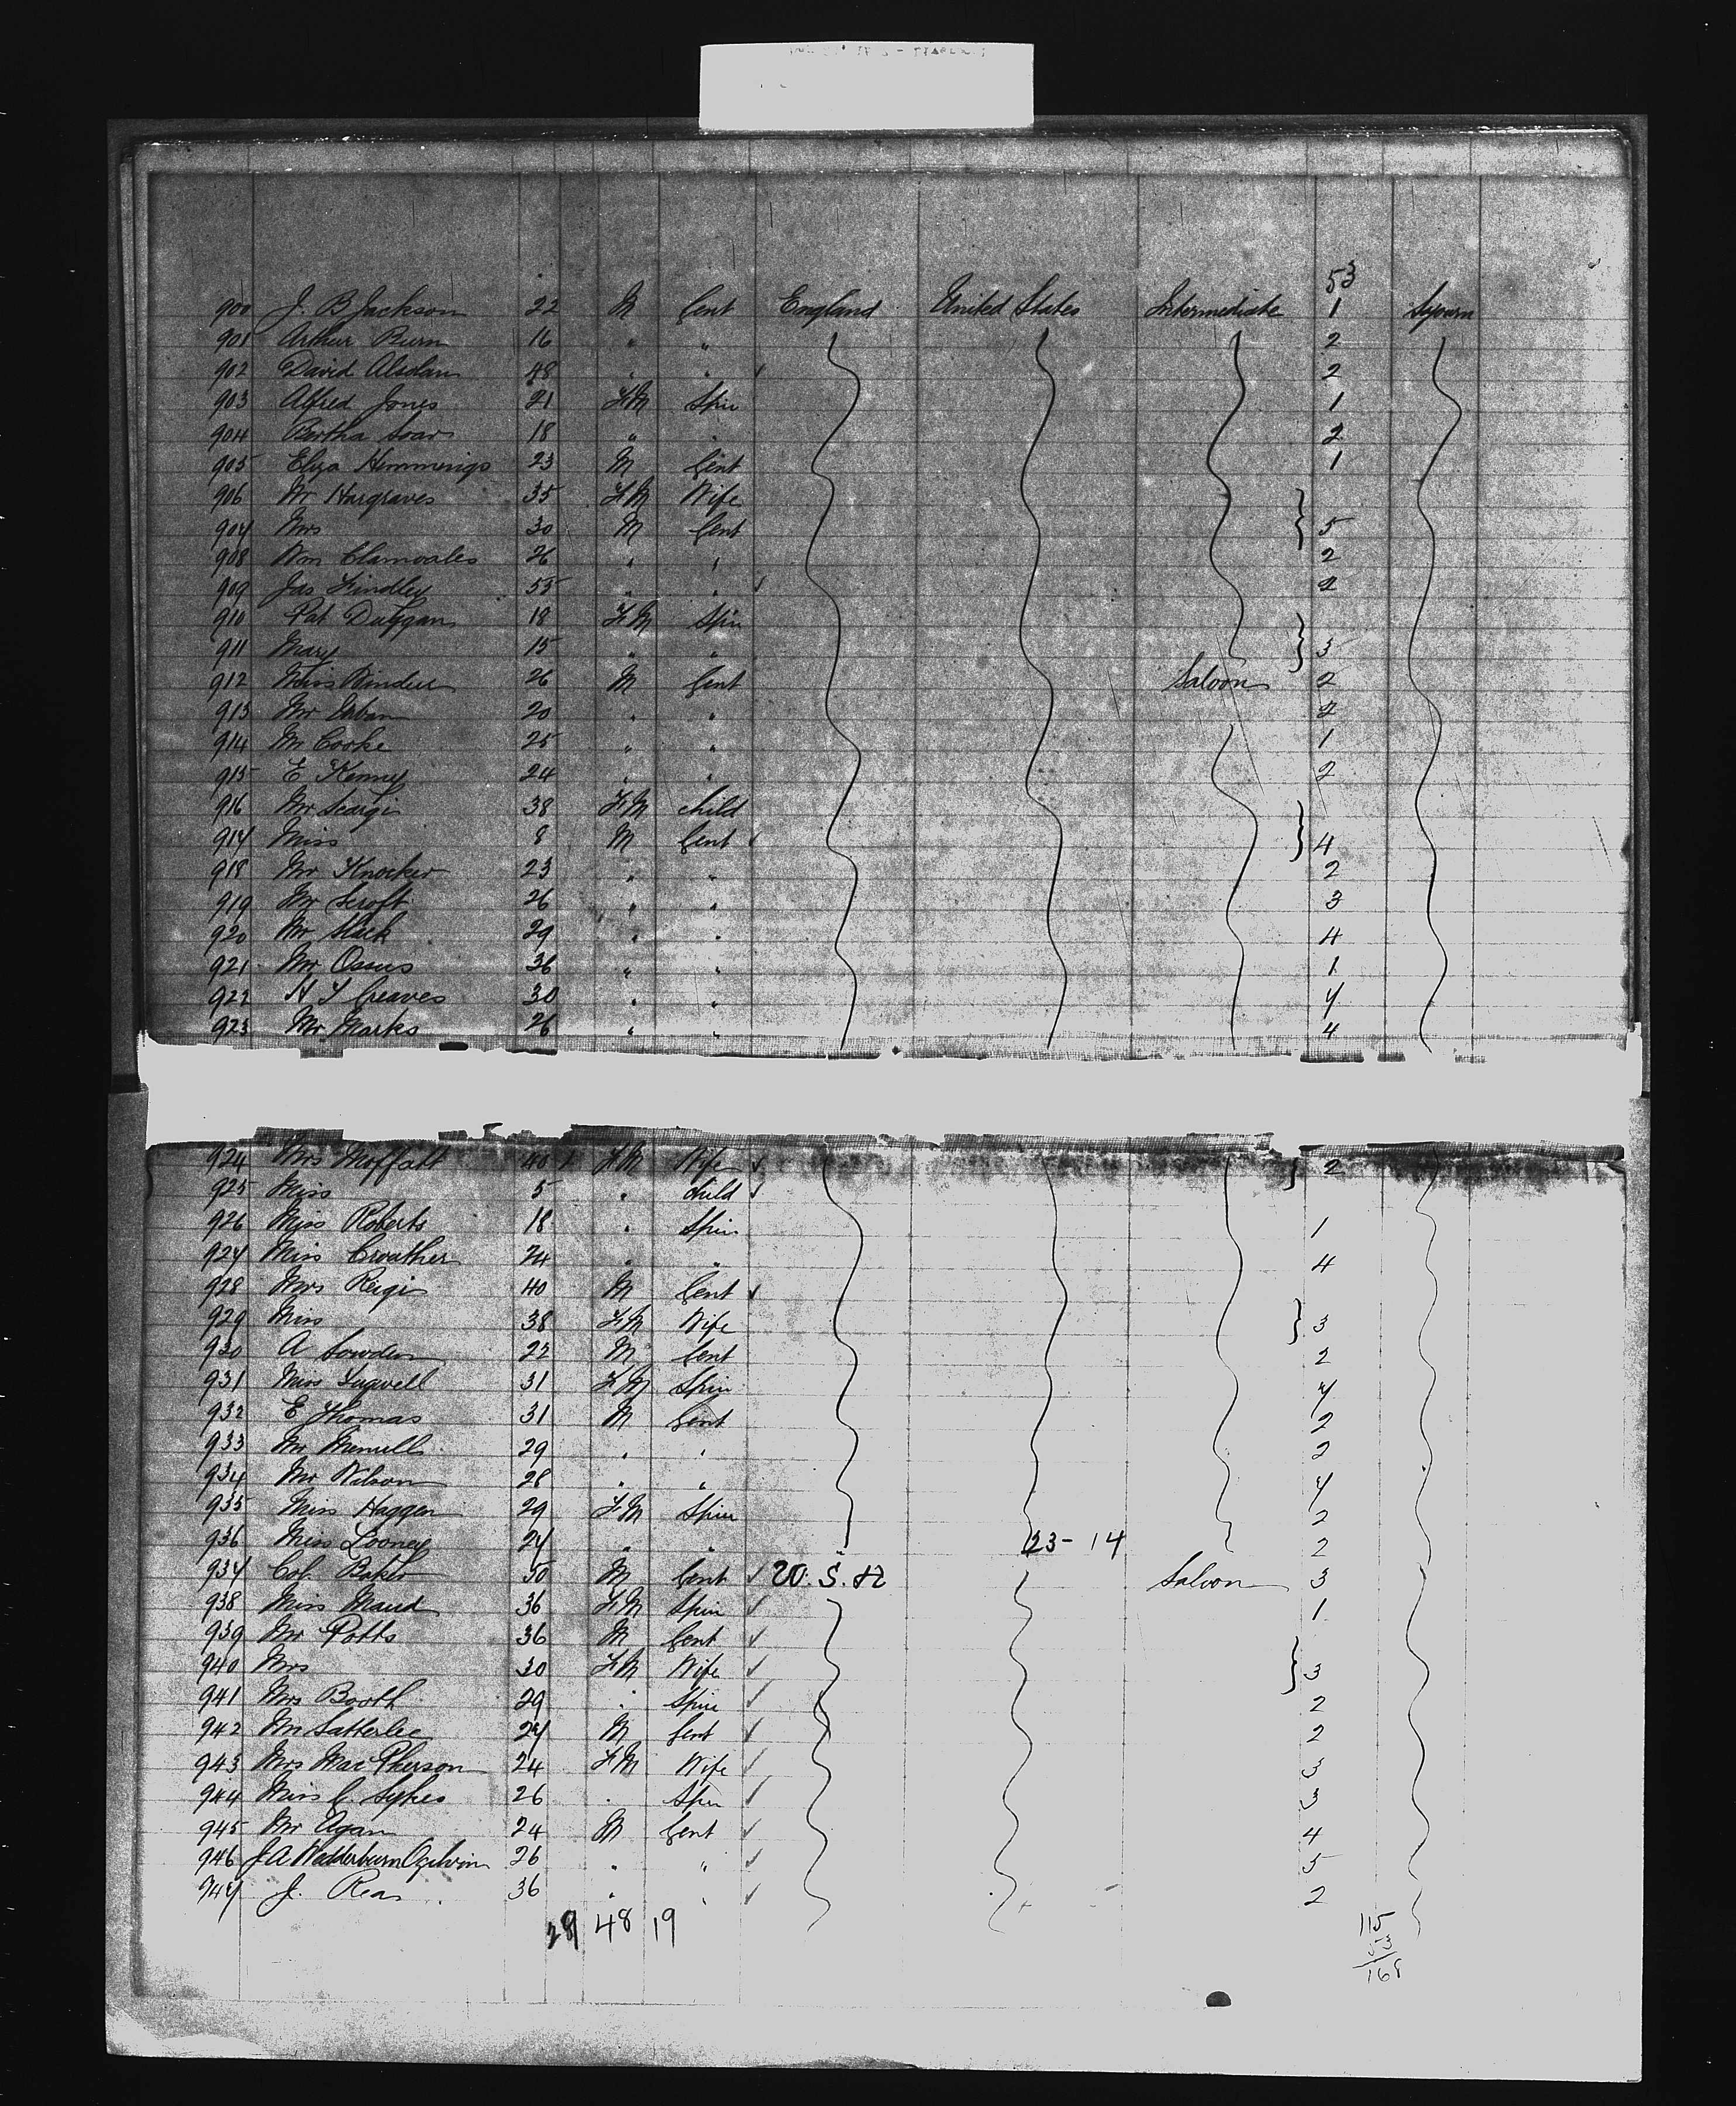 53
900 J. B Jackson 22 M Gent England United States Intermediate 1 Sojourn
901 Arthur Burn 16 " " 2
902 David 48 " " 2
903 Alfred Jones 21 FM Spin 1
904 Bertha Soar 18 " " 2
905 Eliza Hemmings 23 M Gent 1
906 Mr Hargraves 35 FM Wife
907 Mrs 30 M Gent 5
908 Wm 26 " " 2
909 Jas Findley 55 " " 2
910 Pat Duggan 18 FM Spin
911 Mary 15 " " 3
912 Miss 26 M Gent Saloon 2
913 Mr Urban 20 " " 2
914 Mr Cooke 25 " " 1
915 E Kenney 24 " " 2
916 Mr 38 FM Child
917 Miss 8 M Gent 4
918 Mr Knocker 23 " " 2
919 Mr Scroft 26 " " 3
920 Mr Slack 29 " " 4
921 Mr 36 " " 1
922 H T Greaves 30 " " 7
923 Mr Marks 26 " " 4
924 Mrs Moffatt 40 1 FM Wife 2
925 Miss 5 " Child
926 Miss Roberts 18 " Spin 1
927 Miss Crowther 24 " " 4
928 Mrs 40 M Gent
929 Miss 38 FM Wife 3
930 A Sowden 22 M Gent 2
931 Miss Tugwell 31 FM Spin 7
932 E Thomas 31 M Gent 2
933 Mr 29 " " 2
934 Mr Wilson 28 " " 7
935 Miss Haggen 29 FM Spin 2
936 Miss Looney 27 " " 23-14 2
937 Col. Baker 50 M Gent 20. S. Saloon 3
938 Miss Maud 36 FM Spin 1
939 Mr Potts 36 M Gent
940 Mrs 30 FM Wife 3
941 Mrs Booth 29 " Spin 2
942 Mr Satterlee 27 M Gent 2
943 Mrs MacPherson 24 FM Wife 3
944 Miss C. Sykes 26 " Spin 3
945 Mr Agan 24 M Gent 4
946 J A Wedderburn Ogilvin 26 " " 5
947 J. Rea 36 " " 2
29 48 19
115
53
168